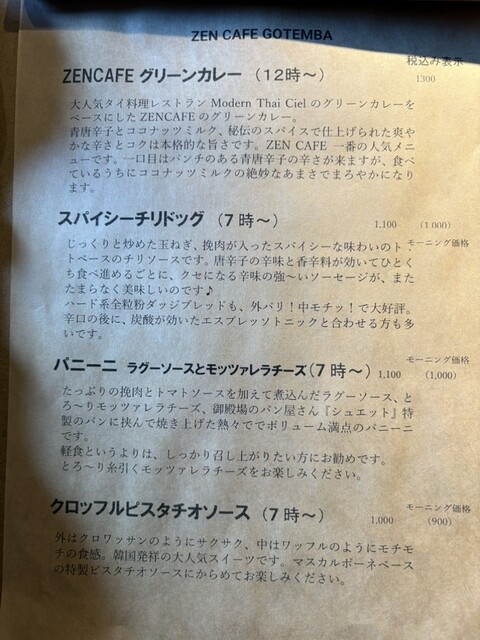 ZEN CAFE GOTEMBA
税込み表示
ZENCAFE グリーンカレー（12時～） 1300
大人気タイ料理レストラン Modern Thai Ciel のグリーンカレーを
ベースにした ZENCAFE のグリーンカレー。
青唐辛子とココナッツミルク、秘伝のスパイスで仕上げられた爽や
かな辛さとコクは本格的な旨さです。ZEN CAFE 一番の人気メ
ニューです。一口目はパンチのある青唐辛子の辛さが来ますが、食べ
ているうちにココナッツミルクの絶妙なあまさでまろやかになり
ます。
スパイシーチリドッグ（7時～） 1,100 （1 000）
モーニング価格
じっくりと炒めた玉ねぎ、挽肉が入ったスパイシーな味わいのト
トベースのチリソースです。唐辛子の辛味と香辛料が効いてひとく
ち食べ進めるごとに、クセになる辛味の強～いソーセージが、また
たまらなく美味しいのです♪
ハード系全粒粉ダッジブレッドも、外バリ！中モチッ！で大好評。
辛口の後に、炭酸が効いたエスプレッソトニックと合わせる方も多
いです。
モーニング価格
パニーニ ラグーソースとモッツァレラチーズ（7時～） 1,100 （1,000）
たっぷりの挽肉とトマトソースを加えて煮込んだラグーソース、と
ろ～りモッツァレラチーズ、御殿場のパン屋さん『シュエット』特
製のパンに挟んで焼き上げた熱々ででボリューム満点のパニーニ
です。
軽食というよりは、しっかり召し上がりたい方にお勧めです。
とろ～り糸引くモッツァレラチーズをお楽しみください。
モーニング価格
クロッフルピスタチオソース（7時～） 1,000 （900）
外はクロワッサンのようにサクサク、中はワッフルのようにモチモ
チの食感。韓国発祥の大人気スイーツです。マスカルポーネベース
の特製ピスタチオソースにからめてお楽しみください。